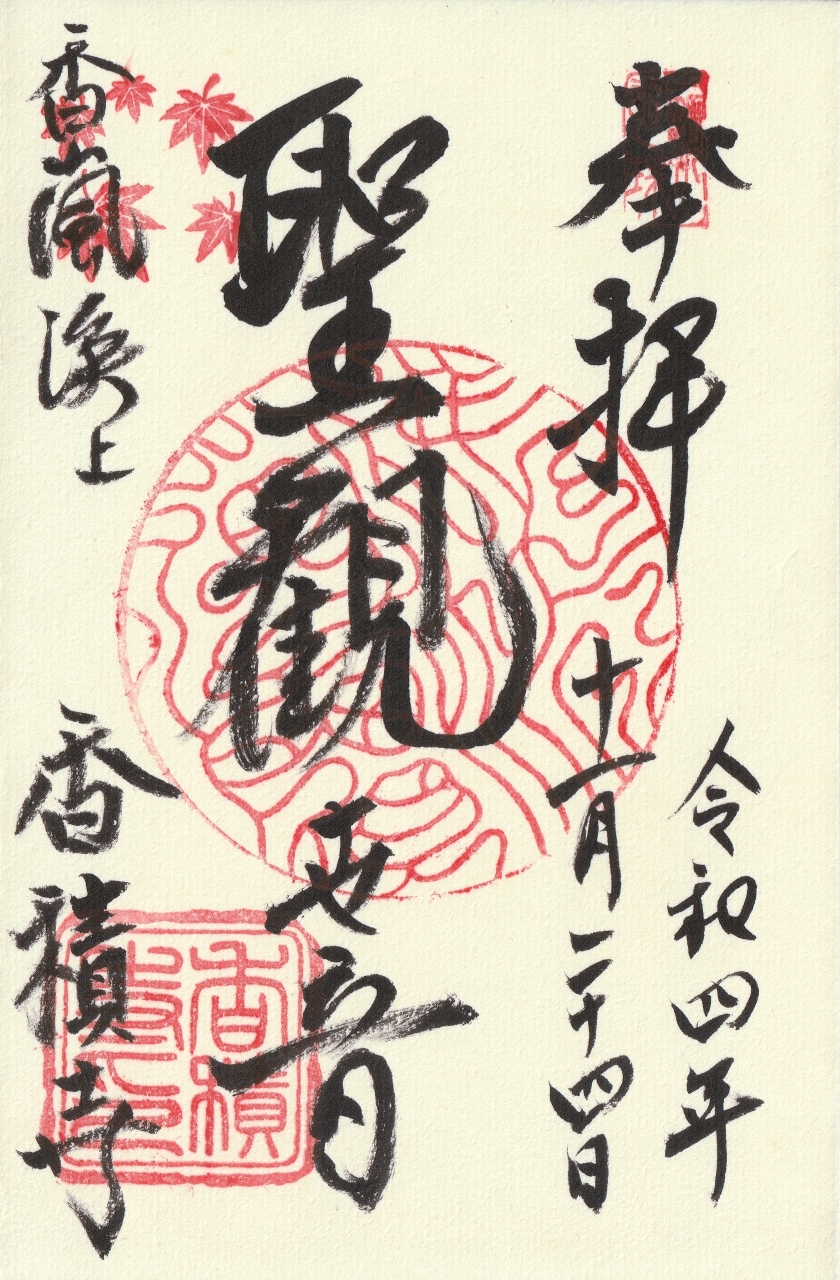 奉拝
令和四年
十一月二十四日
聖観世音
香嵐溪上
香積寺
香積
寺印